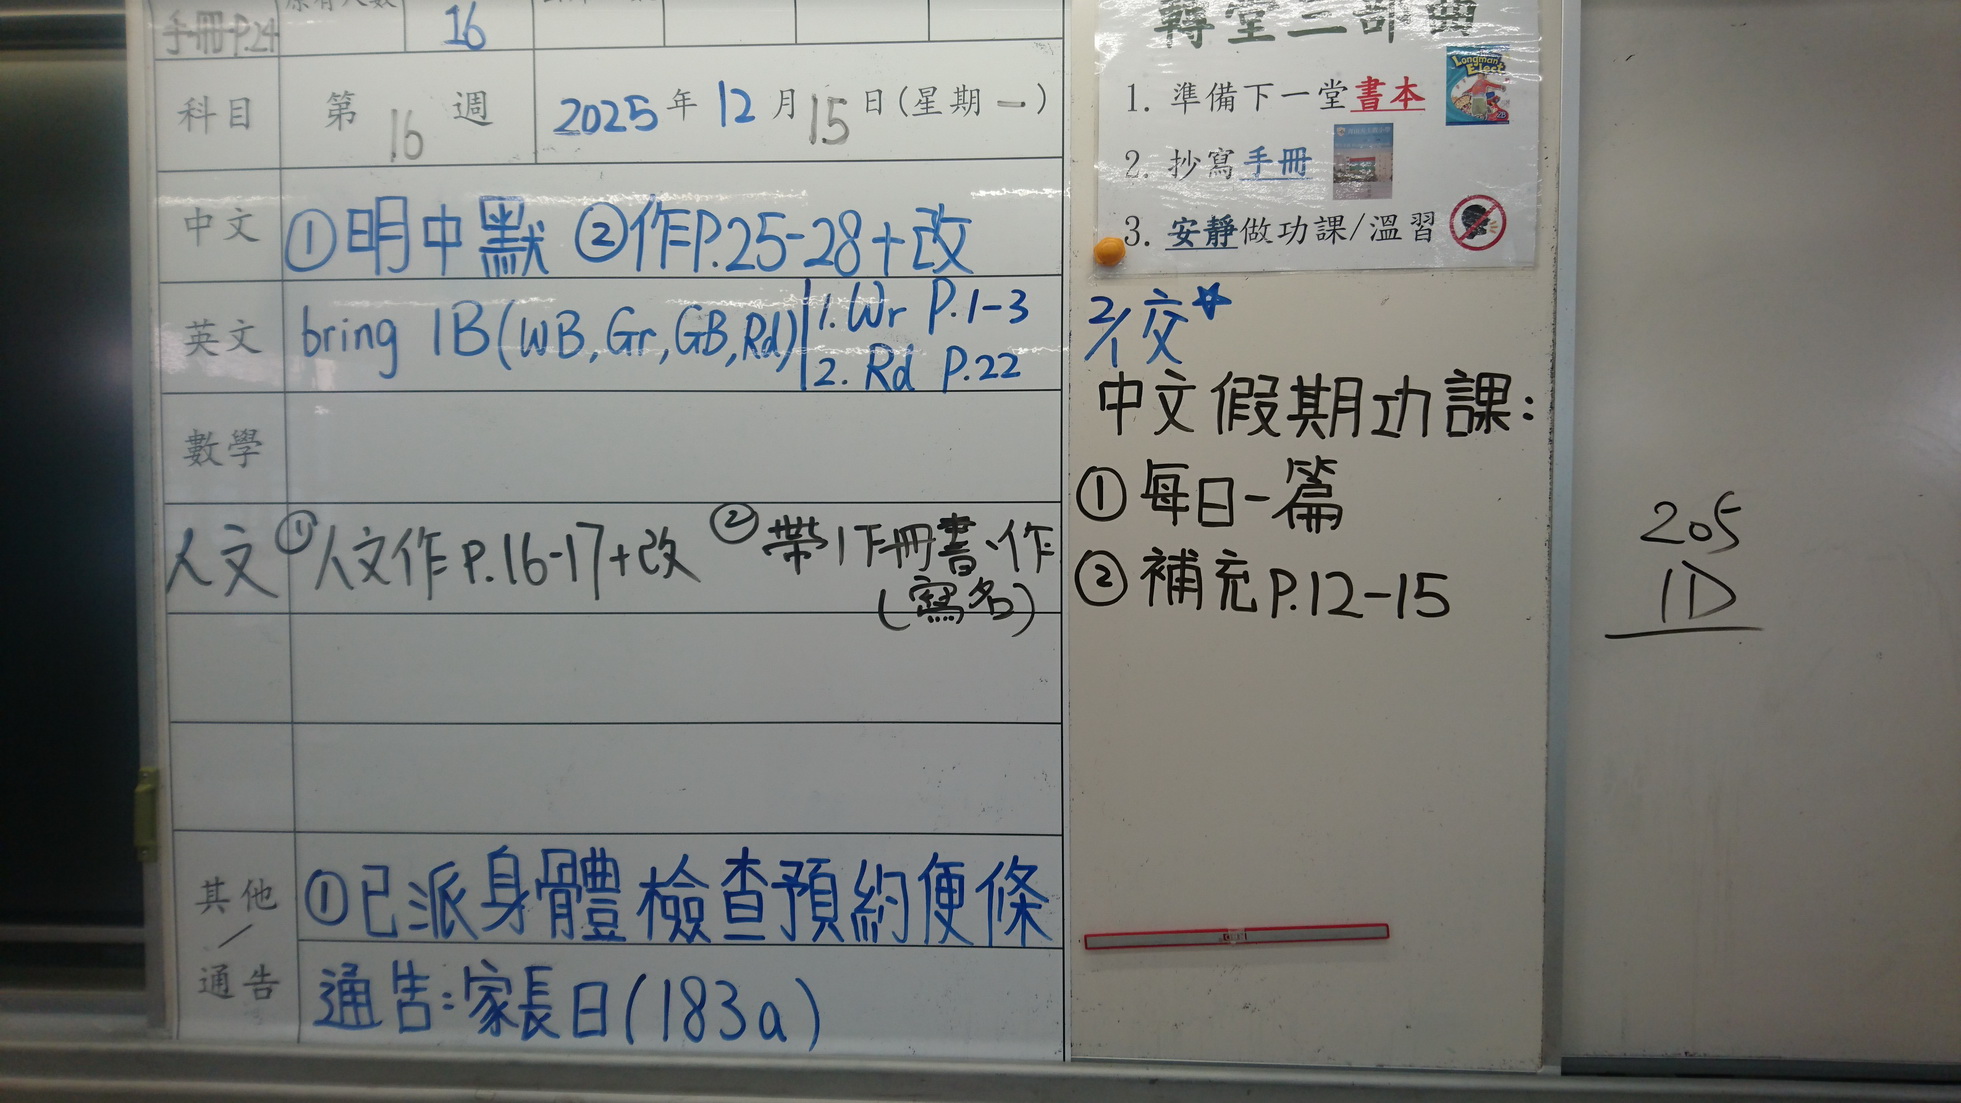 手冊P.24
16
科目 第16週 2025年12月15日(星期一)
中文 ①明中默 ②作P.25-28+改
英文 bring 1B(WB,Gr,GB,Rd) 1.Wr P.1-3
2. Rd P.22
數學
人文 ①人文作P.16-17+改 ②帶1下冊書、作
(寫名)
其他/通告
①已派身體檢查預約便條
通告:家長日(183a)
轉堂三部曲
1. 準備下一堂書本
Longman Elect
2. 抄寫手冊
3. 安靜做功課/溫習
2/1交☆
中文假期功課:
①每日一篇
②補充P.12-15
205
1D